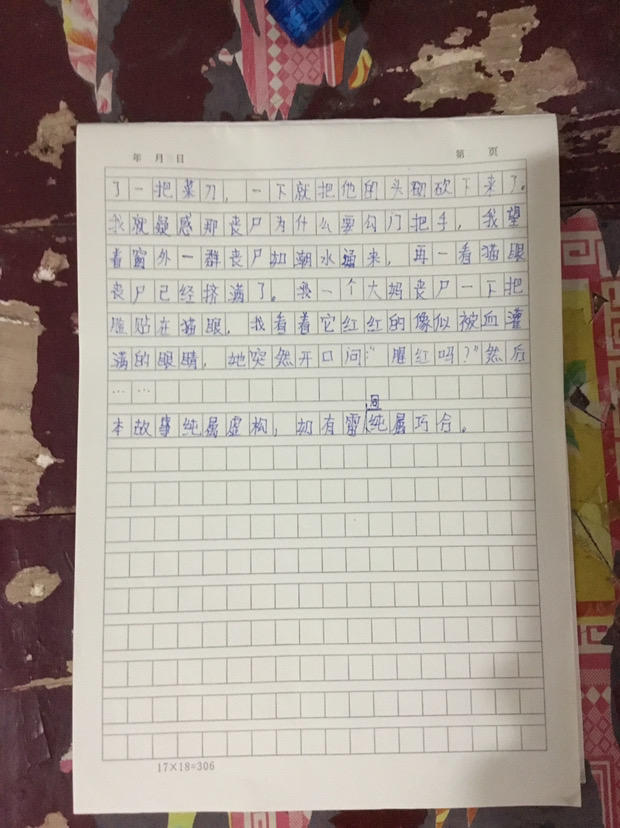 年 月 日 第 页
了一把菜刀，一下就把他的头砍下来了。
我就疑惑那丧尸为什么要勾门把手，我望
着窗外一群丧尸如潮水涌来，再一看猫眼
丧尸已经挤满了。一个大妈丧尸一下把
脸贴在猫眼，我看着它红红的像似被血灌
满的眼睛，她突然开口问："腥红吗？"然后
……
本故事纯属虚构，如有雷同，纯属巧合。
17×18=306